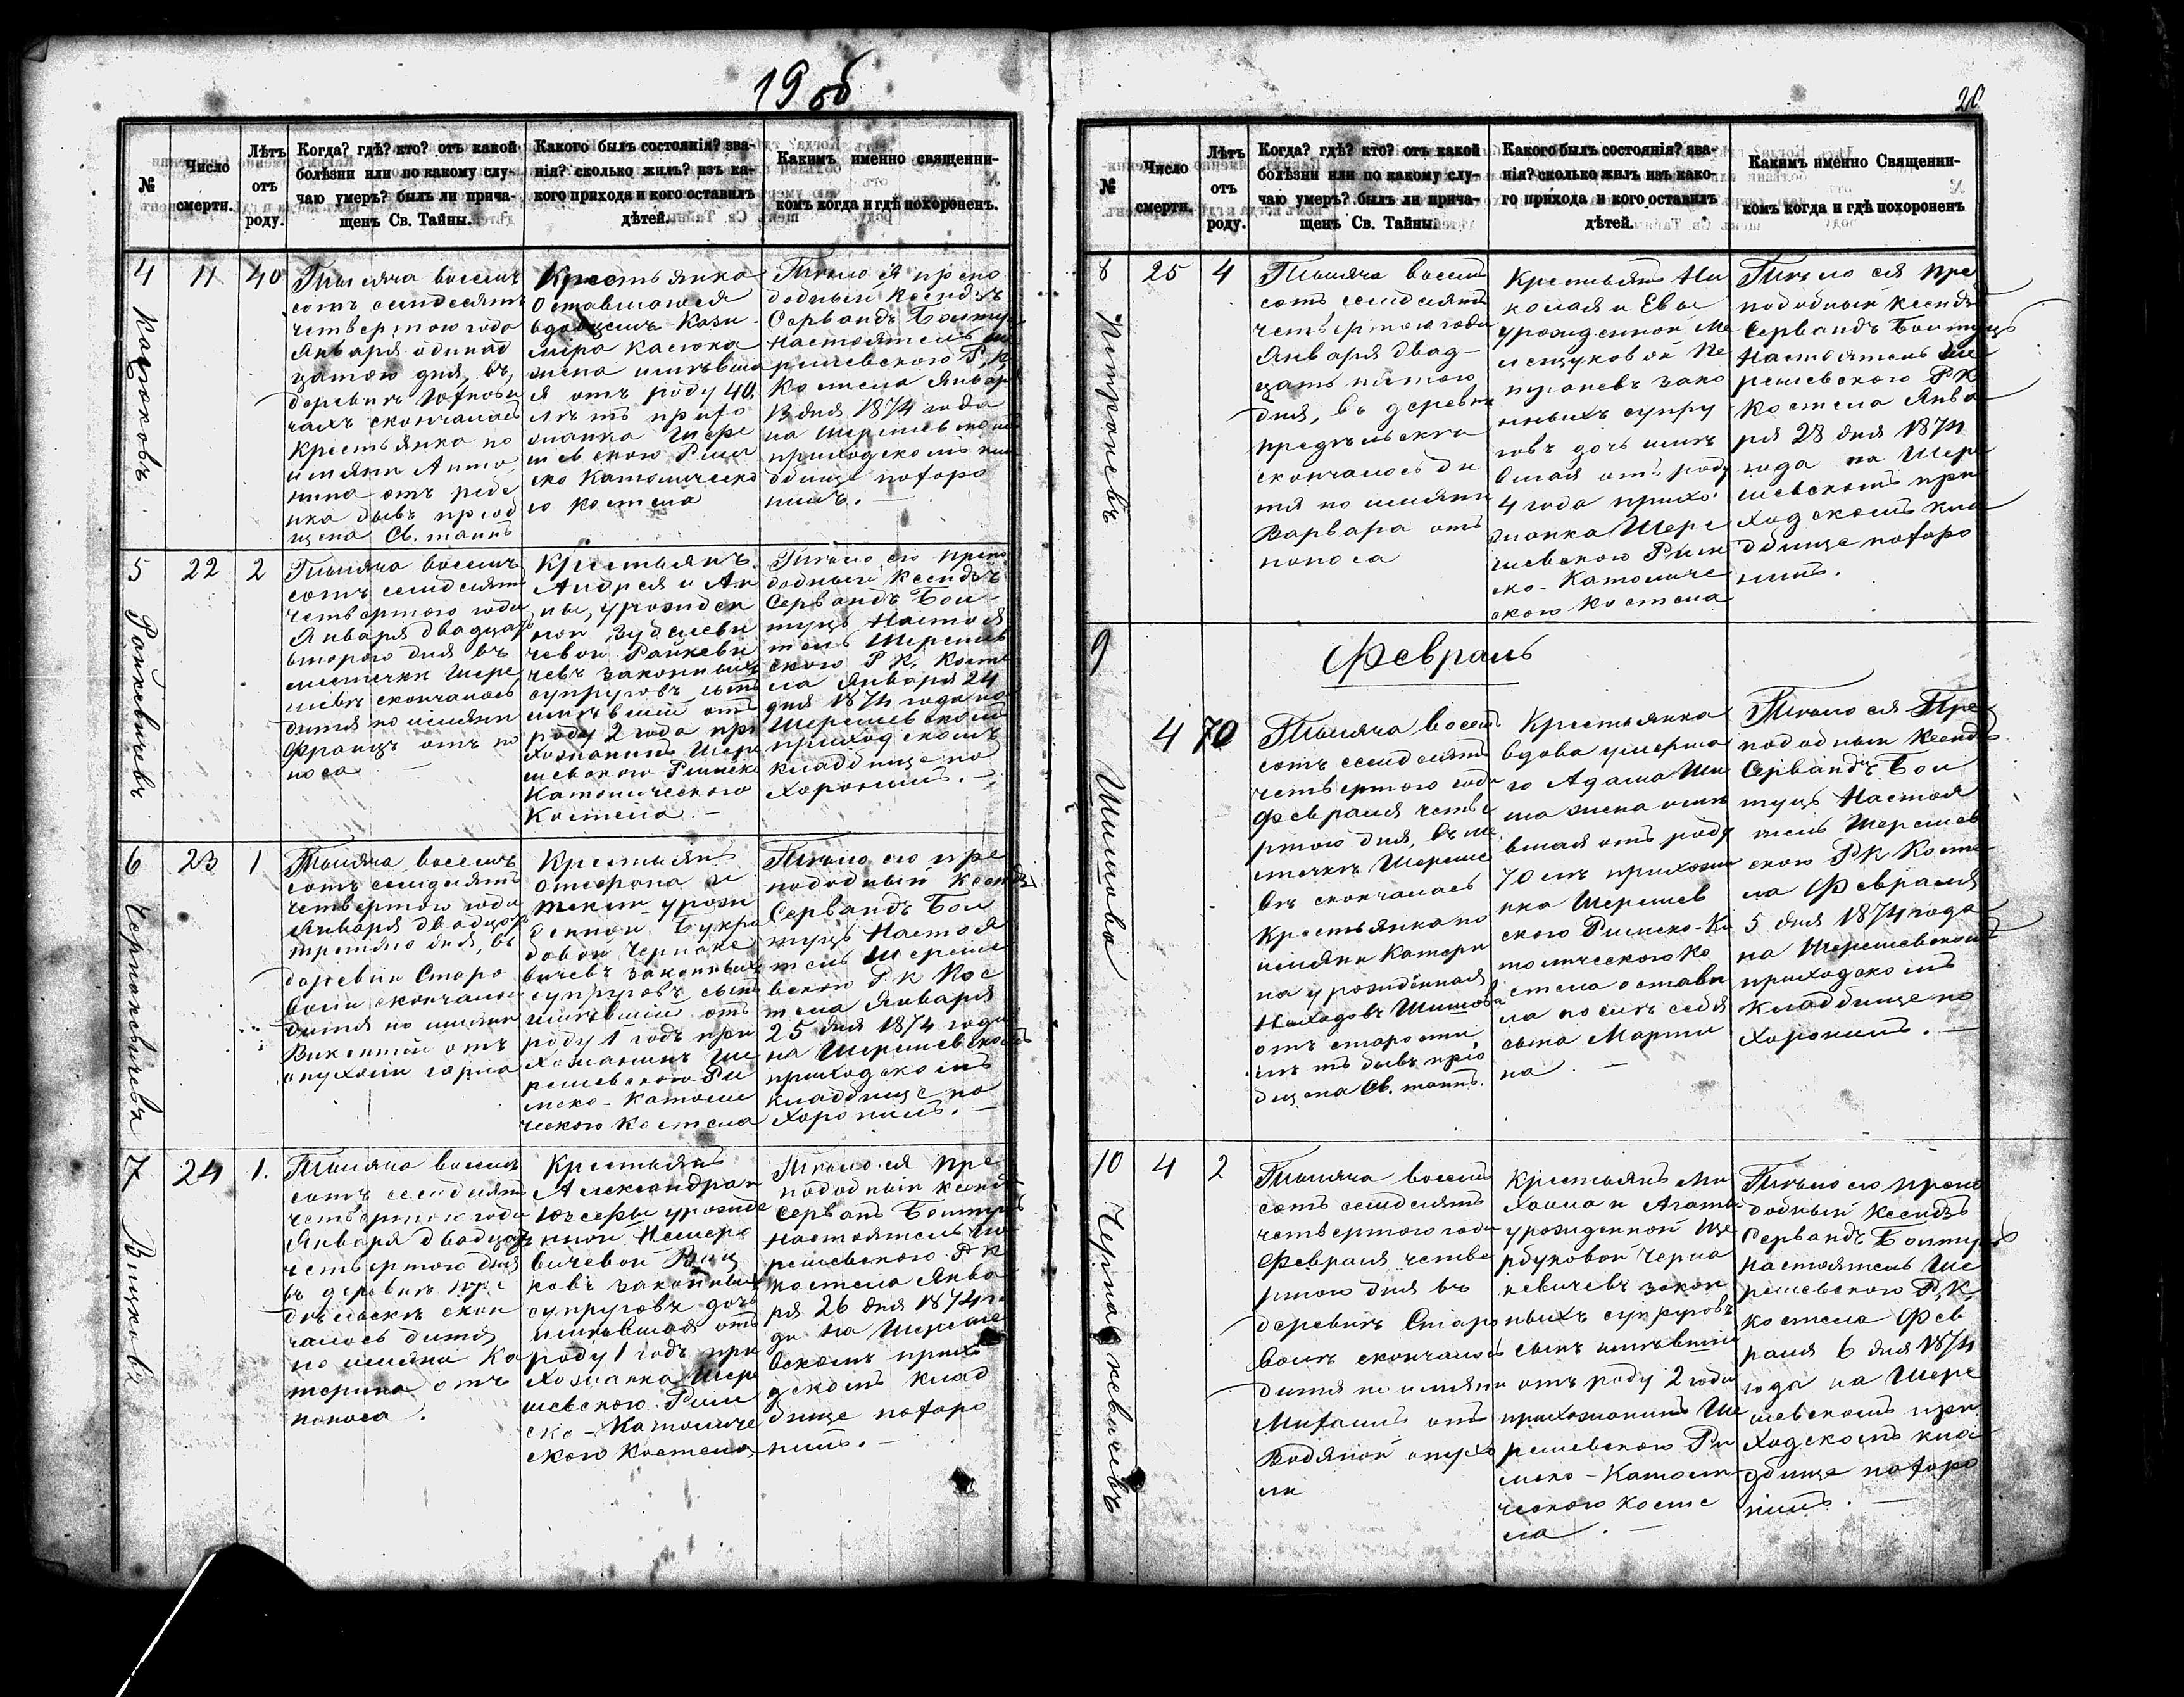 19 об
20
№
Число
смерти.
Лѣтъ
отъ
роду.
Когда? гдѣ? кто? отъ какой
болѣзни или по какому слу-
чаю умеръ? былъ ли прича-
щенъ Св. Тайны.
Какого былъ состоянія? зва-
нія? сколько жилъ? изъ ка-
кого прихода и кого оставилъ
дѣтей.
Какимъ именно священни-
комъ когда и гдѣ похороненъ.
4
Касюковъ
11
40
Тысяча восемь
сотъ семдесятъ
четвертого года
Января одинад
цатого дня, въ
деревнѣ
чахъ скончалась
Крестьянка по
имяни Анто
нина отъ
нка бывъ приоб
щена Св. таинъ
Крестьянка
Оставшаяся
вдовцемъ Кази
мира Касюка
жена имѣвша
я отъ роду 40.
лѣтъ прихо
жанка Шере
шевского Рим
ско Католическо
го костела
Тѣло ея препо
добный Ксендзъ
Сервандъ Болтуць
Настоятель Ше
решевского Р. К.
Костела Января
13 дня 1874 года
на Шерешевскомъ
приходскомъ кла
дбище похоро
нилъ. —
5
Ранкевичевъ
22
2
Тысяча восемь
сотъ семдесятъ
четвертого года
Января двадцать
второго дня въ
местечкѣ Шере
шевѣ скончалось
дитя по имяни
Францъ отъ по
носа —
Крестьянъ
Андрея и Ан
ны, урожден
ной Зубелеви
чевой Ранкеви
чевъ законныхъ
супруговъ сынъ
имѣвшій отъ
роду 2 года при
хожанинъ Шере
шевского Римско
Католического
Костела. —
Тѣло его препо
добный Ксендзъ
Сервандъ Бол
туць Настоя
тель Шерешев
ского Р. К. Косте
ла Января 24
дня 1874 года на
Шерешевскомъ
приходскомъ
кладбище по
хоронилъ. —
6
Чернакевичевъ
23
1
Тысяча восемь
сотъ семдесятъ
четвертого года
Января двадцать
третяго дня, въ
деревни Старо
воли скончалось
дитя по имяни
Викентій отъ
опухоли горла
Крестьянъ
Онофрона и
Теклі урож
денной Букра
бовой Чернаке
вичевъ законныхъ
супруговъ сынъ
имѣвшій отъ
роду 1 годъ при
хожанинъ Ше
решевского Ри
мско-Католи
ческого Костела
Тѣло его пре
подобный Ксендзъ
Сервандъ Бол
туць Настоя
тель Шереше
вского Р. К Кос
тела Января
25 дня 1874 года
на Шерешевскомъ
приходскомъ
кладбище по
хоронилъ. —
7
Вицковъ
24
1.
Тысяча восемь
сотъ семдесятъ
четвертого года
Января двадцать
четвертого дня
въ деревнѣ Пре
дѣльскѣ скон
чалось дитя
по имяни Ка
терина отъ
поноса.
Крестьянъ
Александра и
Юзефы урожде
нной Немеро
вичевой Виц
ковъ законныхъ
супруговъ дочь
имѣвшая отъ
роду 1 годъ при
хожанка Шере
шевского Рим
ско-Католиче
ского Костела,
Тѣло ея пре
подобный Ксендзъ
Сервандъ Болтуць
Настоятель Ше
решевского Р. К
костела Янва
ря 26 дня 1874 го
да на Шереше
вскомъ прихо
дскомъ клад
бище похоро
нилъ. —
№
Число
смерти.
Лѣтъ
отъ
роду.
Когда? гдѣ? кто? отъ какой
болѣзни или по какому слу-
чаю умеръ? былъ ли прича-
щенъ Св. Тайны.
Какого былъ состоянія? зва-
нія? сколько жилъ изъ како-
го прихода и кого оставилъ
дѣтей.
Какимъ именно Священни-
комъ когда и гдѣ похороненъ
8
Петроневъ
25
4
Тысяча восемь
сотъ семдесятъ
четвертого года
Января двад-
цать пятого
дня, въ деревнѣ
предѣльскѣ
скончалось ди
тя по имяни
Варвара отъ
поноса
Крестьянъ Ни
колая и Евы
урожденной Ме
лещуковой Пе
троневъ зако
нныхъ супру
говъ дочь имѣ
вшая отъ роду
4 года прихо
жанка Шере
шевского Рим
ско-Католиче
ского Костела
Тѣло ея пре
подобный Ксендзъ
Сервандъ Болтуць
Настоятель Ше
решевского Р К
Костела Янва
ря 28 дня 1874
года на Шере
шевскомъ при
ходскомъ кла
дбище похоро
нилъ.
Февраль
9
Шишова
4
70
Тысяча восемь
сотъ семдесятъ
четвертого года
Февраля четве
ртого дня, въ ме
стечкѣ Шереше
вѣ скончалась
Крестьянка по
имяни Катери
на урожденная
Находовъ Шишова
отъ старости
лѣтъ бывъ прио
бщена Св. таинъ.
Крестьянка
вдова умерша
го Адама Ши
ша жена имѣ
вшая отъ роду
70 лѣтъ прихожа
нка Шерешев
ского Римско-Ка
толического Ко
стела остави
ла послѣ себя
сына Марти
на. —
Тѣло ея Пре
подобный Ксендзъ
Сервандъ Бол
туць Настоя
тель Шерешев
ского Р К Косте
ла Февраля
5 дня 1874 года
на Шерешевскомъ
приходскомъ
кладбище по
хоронилъ. —
10
Чернакевичевъ
4
2
Тысяча восемь
сотъ семдесятъ
четвертого года
Февраля четве
ртого дня въ
деревнѣ Старо
воли скончалось
дитя по имяни
Михаилъ отъ
Водяной опухо
ли
Крестьянъ Ми
хаила и Агаты
урожденной Ще
рбуковой Черна
кевичевъ закон
ныхъ супруговъ
сынъ имѣвшій
отъ роду 2 года
прихожанинъ Ше
решевского Ри
мско-Католи
ческого Косте
ла. —
Тѣло его препо
добный Ксендзъ
Сервандъ Болтуць
настоятель Ше
решевского Р. К,
Костела Фев
раля 6 дня 1874
года на Шере
шевскомъ при
ходскомъ кла
дбище похоро
нилъ. —